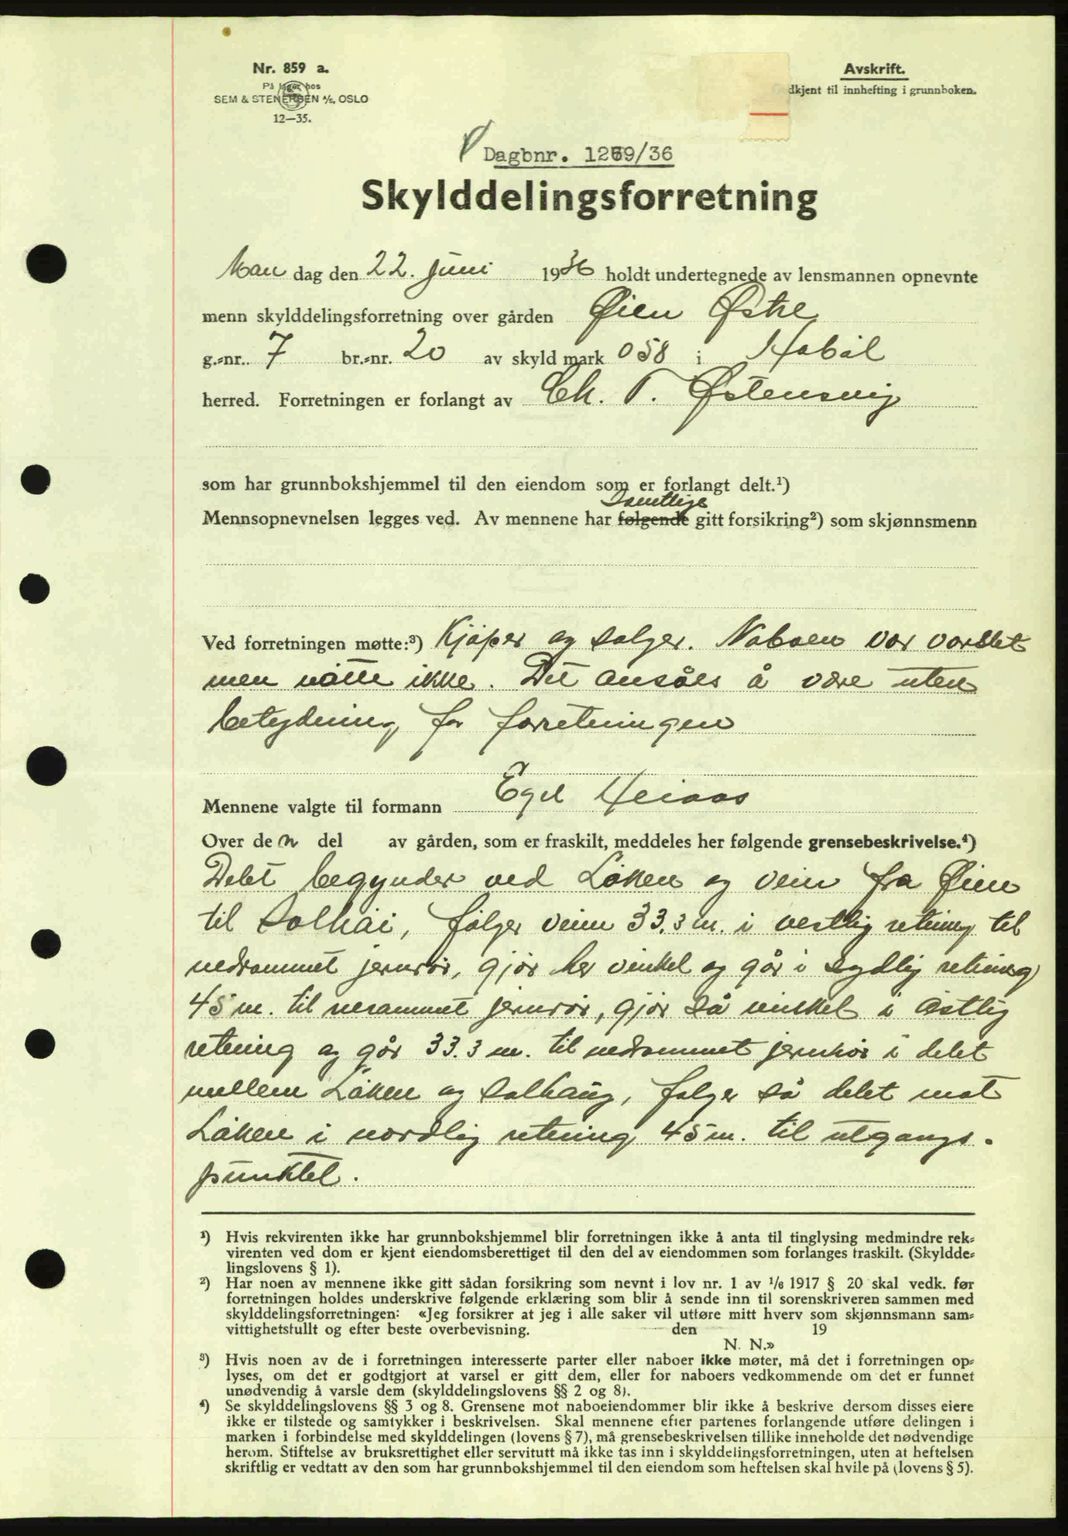 Nr. 859 a.
På lager hos
SEM & STENERSEN A/S, OSLO
12—35.
Avskrift.
dkjent til innhefting i grunnboken.
Dagbnr. 1269/36
Skylddelingsforretning
Man dag den 22. juni 1936 holdt undertegnede av lensmannen opnevnte
menn skylddelingsforretning over gården Øien Østre
g.-nr.. 7 br.-nr. 20 av skyld mark 058 i Hobøl
herred. Forretningen er forlangt av Ch. T. Østensvig
som har grunnbokshjemmel til den eiendom som er forlangt delt.¹)
Samtlige
Mennsopnevnelsen legges ved. Av mennene har følgende gitt forsikring²) som skjønnsmenn
Ved forretningen møtte:³) Kjøper og selger. Naboen var varslet
men møtte ikke. Det ansåes å være uten
betydning for forretningen
Mennene valgte til formann Egil Heiaas
Over de n del av gården, som er fraskilt, meddeles her følgende grensebeskrivelse.⁴)
Delet begynder ved Løken og veien fra Øien
til Solhøi, følger veien 33.3 m. i vestlig retning til
nedrammet jernrør, gjør her vinkel og går i sydlig retning
45 m. til nerammet jernrør, gjør så vinkel i østlig
retning og går 33.3 m. til nedrammet jernrør i delet
mellem Løken og Solhaug, følger så delet mot
Løken i nordlig retning 45 m. til utgangs-
punktet.
¹) Hvis rekvirenten ikke har grunnbokshjemmel blir forretningen ikke å anta til tinglysing medmindre rek-
virenten ved dom er kjent eiendomsberettiget til den del av eiendommen som forlanges fraskilt. (Skyldde-
lingslovens § 1).
²) Har noen av mennene ikke gitt sådan forsikring som nevnt i lov nr. 1 av 1/6 1917 § 20 skal vedk. før
forretningen holdes underskrive følgende erklæring som blir å sende inn til sorenskriveren sammen med
skylddelingsforretningen: «Jeg forsikrer at jeg i alle saker vil utføre mitt hverv som skjønnsmann sam-
vittighetsfullt og efter beste overbevisning. den 19
N. N.»
³) Hvis noen av de i forretningen interesserte parter eller naboer ikke møter, må det i forretningen op-
lyses, om det er godtgjort at varsel er gitt dem, eller for naboers vedkommende om det er funnet
unødvendig å varsle dem (skylddelingslovens §§ 2 og 8).
⁴) Se skylddelingslovens §§ 3 og 8. Grensene mot naboeiendommer blir ikke å beskrive dersom disses eiere
ikke er tilstede og samtykker i beskrivelsen. Skal mennene efter partenes forlangende utføre delingen i
marken i forbindelse med skylddelingen (lovens § 7), må grensebeskrivelsen tillike inneholde det nødvendige
herom. Stiftelse av bruksrettighet eller servitutt må ikke tas inn i skylddelingsforretningen, uten at heftelsen
skriftlig er vedtatt av den som har grunnbokshjemmel til den eiendom som heftelsen skal hvile på (lovens § 5).